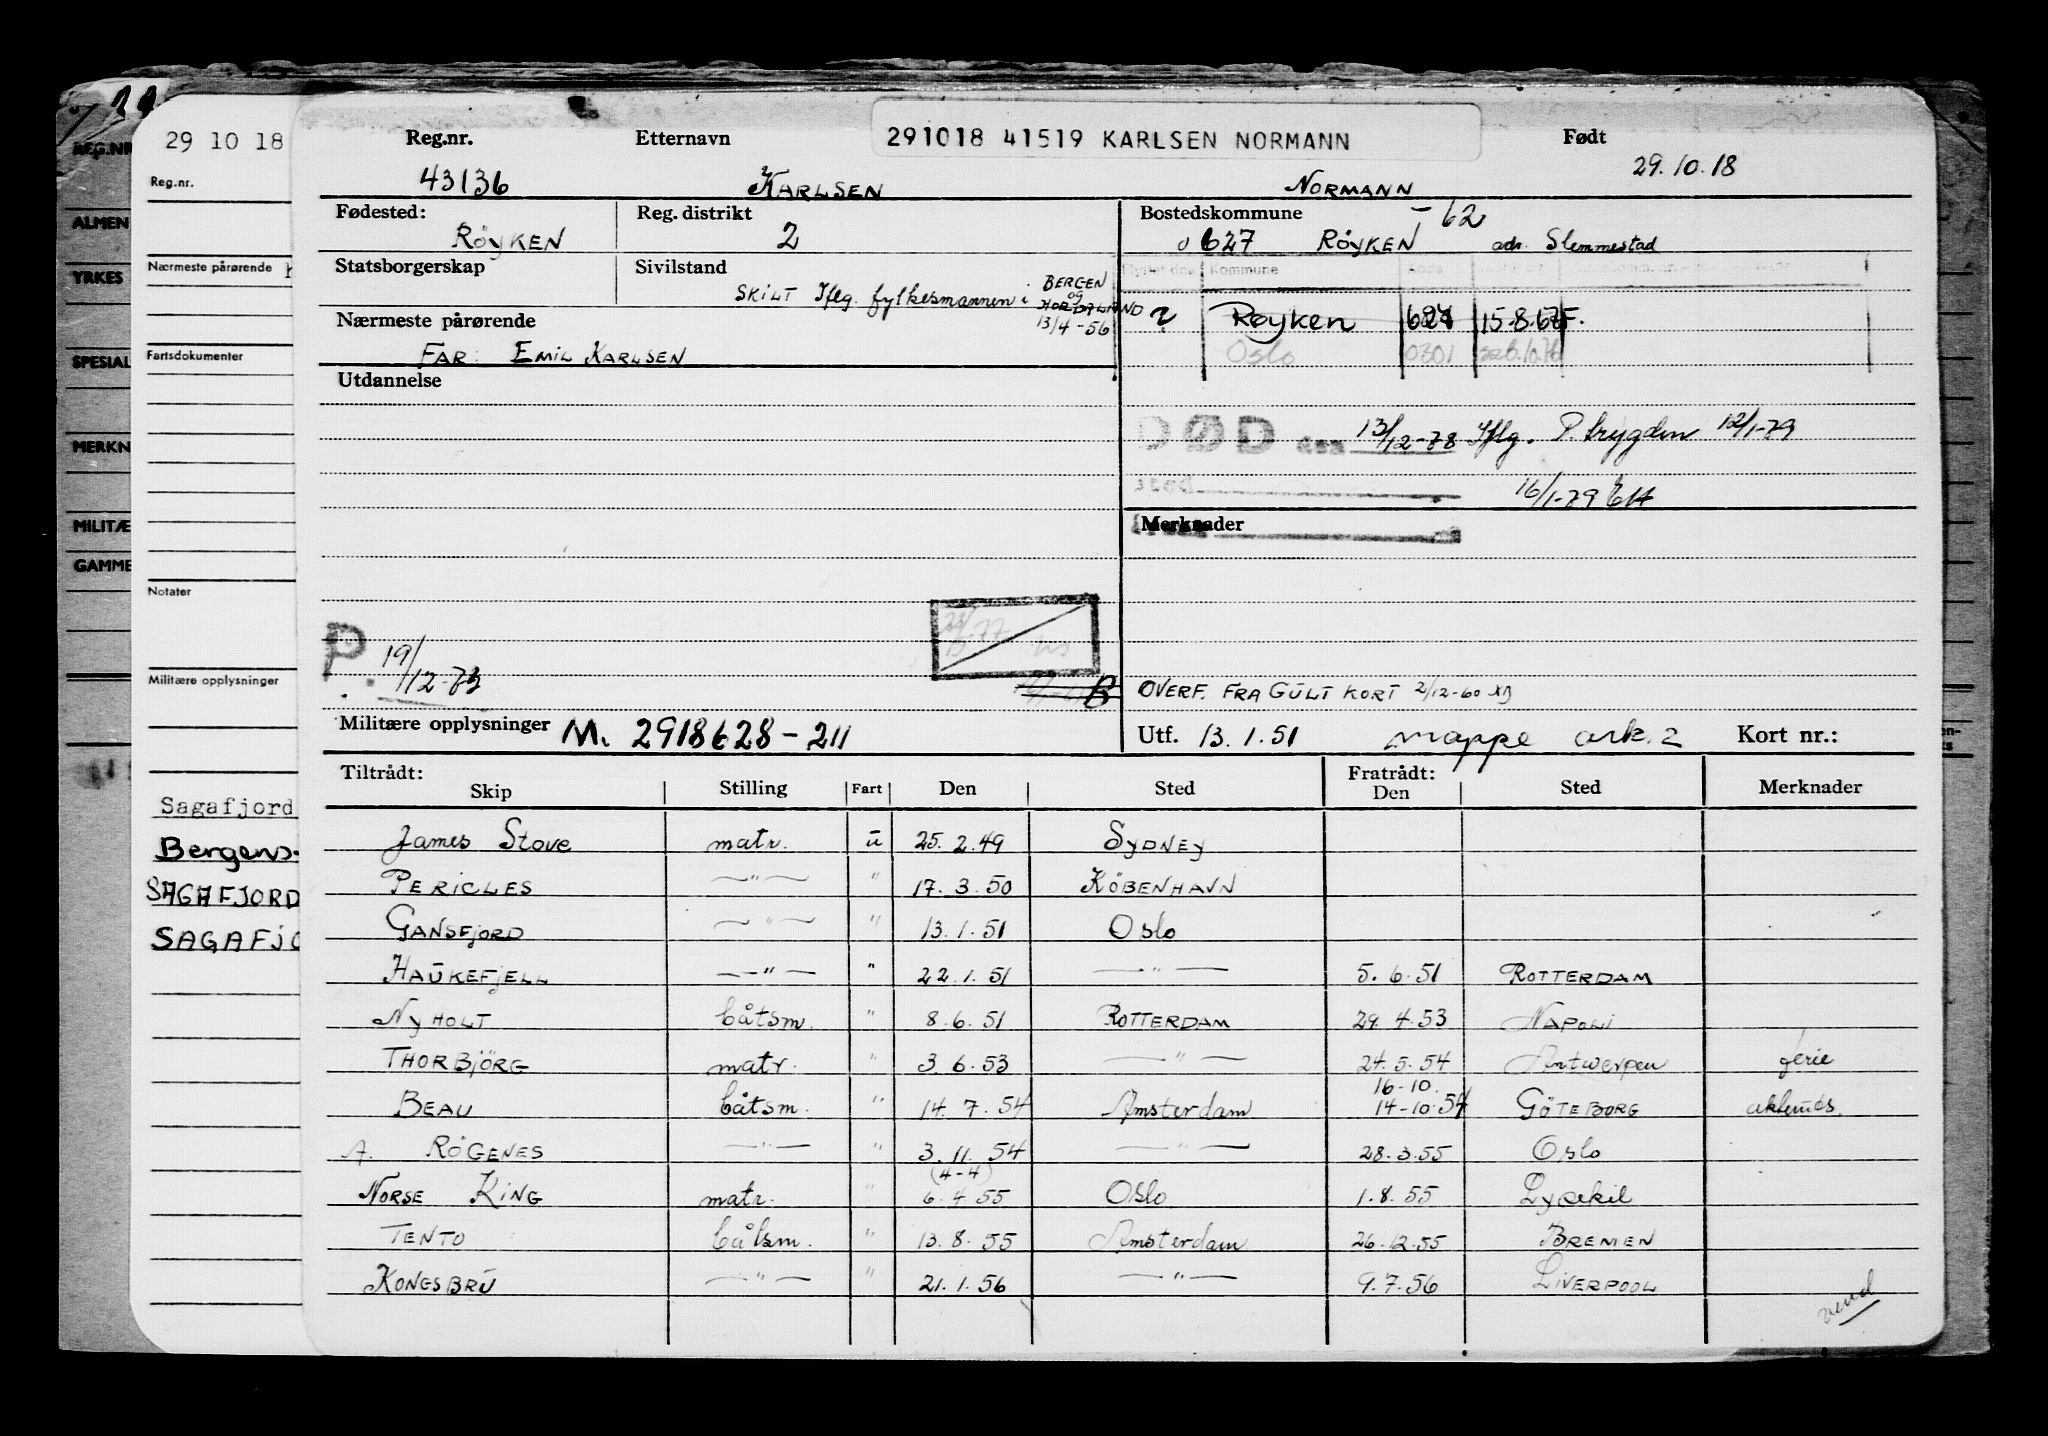 29 10 18
Reg.nr.
Nærmeste pårørende
Fartsdokumenter
Notater
Militære opplysninger
Sagafjord
Bergens-
SAGAFJORD
REG.NR
ALMEN
YRKES
SPESIAL
MERKN
MILITÆ
GAMME
Reg.nr. Etternavn 291018 41519 KARLSEN NORMANN Født
43136 KARLSEN NORMANN 29.10.18
Fødested: Reg. distrikt Bostedskommune -62
RÖYKEN 2 0627 RÖYKEN adr. Slemmestad
Statsborgerskap Sivilstand Kommune
SKILT Iflg. fylkesmannen i BERGEN
og
HORDALAND
13/4-56
Nærmeste pårørende
FAR: EMIL KARLSEN
2 Røyken 627 15.8.67 F.
Oslo 0301
Utdannelse
DØD den 13/12-78 Iflg. P.trygden 12/1-79
16/1-79
Merknader
P. 19/12-73
OVERF. FRA GULT KORT 2/12-60
Militære opplysninger M. 2918628-211
Utf. 13.1.51 mappe ark. 2 Kort nr.:
Tiltrådt: Fratrådt:
Skip Stilling Fart Den Sted Den Sted Merknader
James Stove matr. u 25.2.49 SYDNEY
PERICLES —"— " 17.3.50 KÖBENHAVN
GANSFJORD —"— " 13.1.51 Oslo
HAUKEFJELL —"— " 22.1.51 —"— 5.6.51 ROTTERDAM
NYHOLT båtsm. " 8.6.51 ROTTERDAM 29.4.53 NAPOLI
THORBJÖRG matr. " 3.6.53 —"— 24.5.54 Antwerpen ferie
16-10.
BEAU båtsm. " 14.7.54 Amsterdam 14-10.54 GÖTEBORG
A. RÖGENES —"— " 3.11.54 —"— 28.3.55 Oslo
(4-4)
NORSE KING matr. " 6.4.55 Oslo 1.8.55 Lysekil
TENTO båtsm. " 13.8.55 Amsterdam 26.12.55 BREMEN
KONGSBRU —"— " 21.1.56 —"— 9.7.56 LIVERPOOL
vend